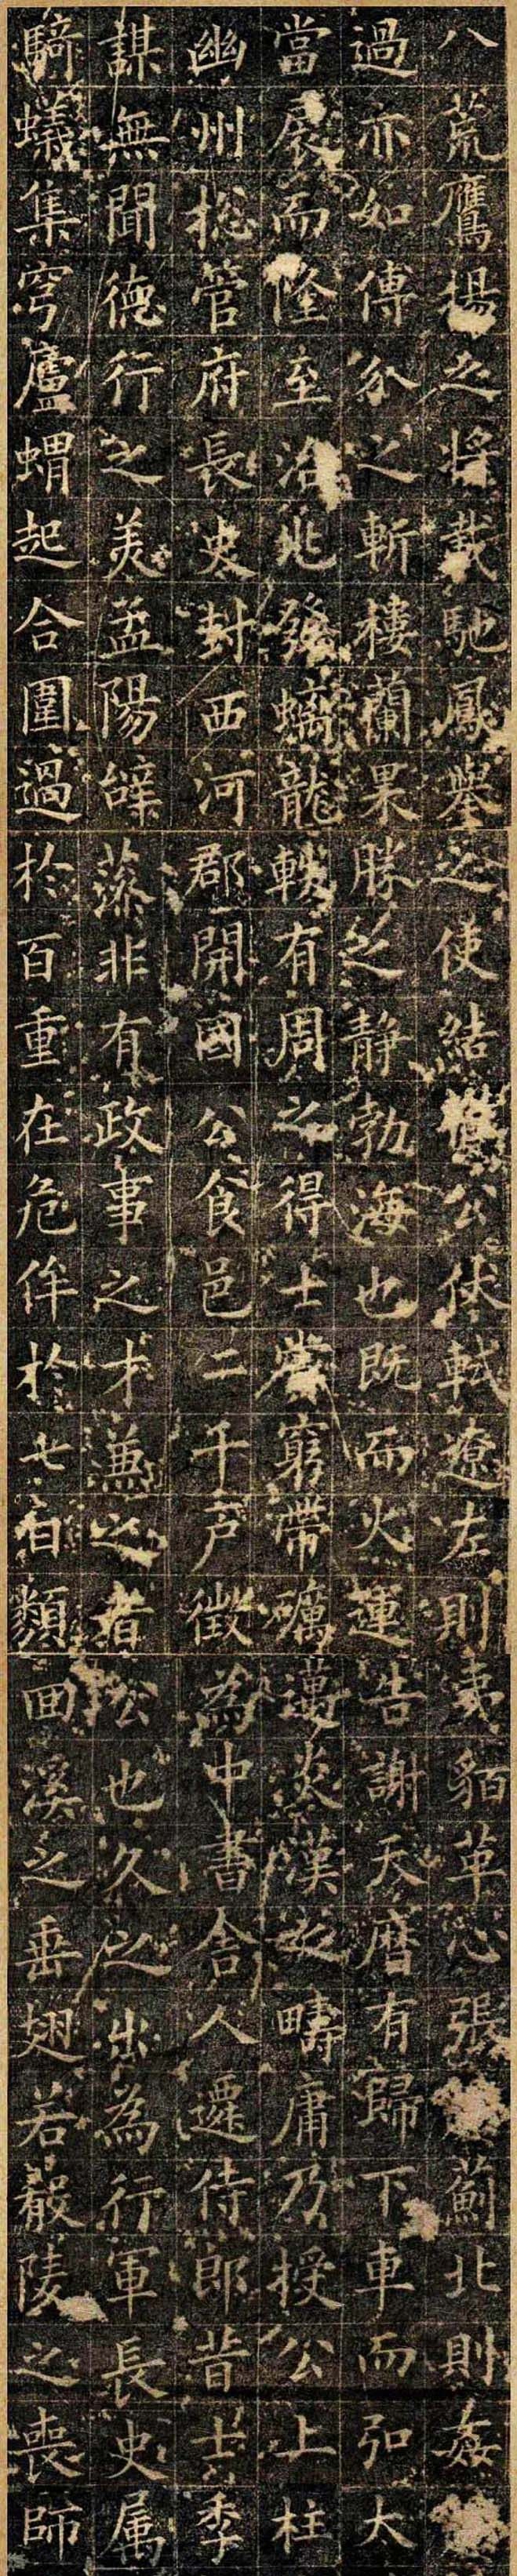 八荒鷹揚之將載馳鳳舉之使結公伏軾遼左則夷貊革心張薊北則姦
過亦如傅介之斬樓蘭果勝之静勃海也既而火運告謝天曆有歸下車而弘太
當扆而隆至治兆發螭龍軼有周之得士賞窮帶礪邁炎漢之疇庸乃授公上柱
幽州揔管府長史封西河郡開國公食邑二千戶徵為中書舍人遷侍郎昔士季
謀無聞德行之美孟陽辭藻非有政事之才兼之者公也久之出為行軍長史属
騎蟻集穹廬蝟起合圍過於百重在危侔於七日類回溪之垂翅若嚴陵之喪師